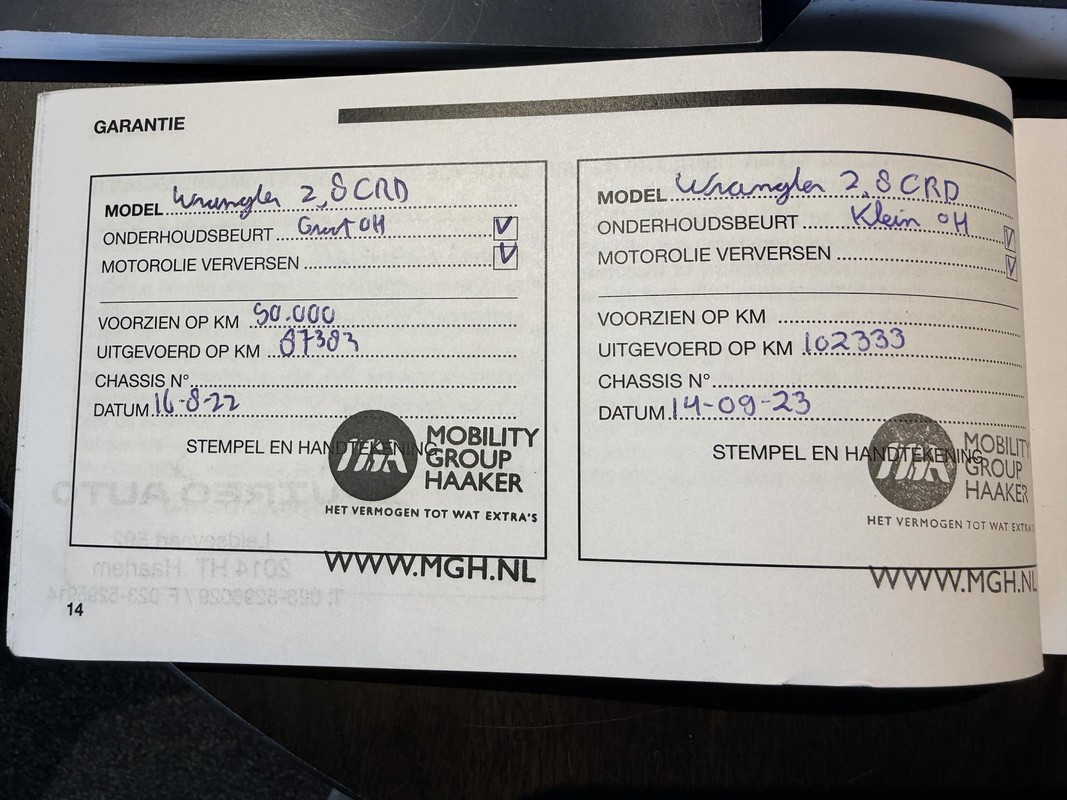 GARANTIE
MODEL Wrangler 2,8 CRD
ONDERHOUDSBEURT Groot OH
MOTOROLIE VERVERSEN
VOORZIEN OP KM 90.000
UITGEVOERD OP KM 87383
CHASSIS N°
DATUM 16-8-22
STEMPEL EN HANDTEKENING
MOBILITY
GROUP
HAAKER
HET VERMOGEN TOT WAT EXTRA'S
WWW.MGH.NL
MODEL Wrangler 2,8 CRD
ONDERHOUDSBEURT Klein OH
MOTOROLIE VERVERSEN
VOORZIEN OP KM
UITGEVOERD OP KM 102333
CHASSIS N°
DATUM 14-09-23
STEMPEL EN HANDTEKENING
MOBILITY
GROUP
HAAKER
HET VERMOGEN TOT WAT EXTRA
WWW.MGH.NL
14